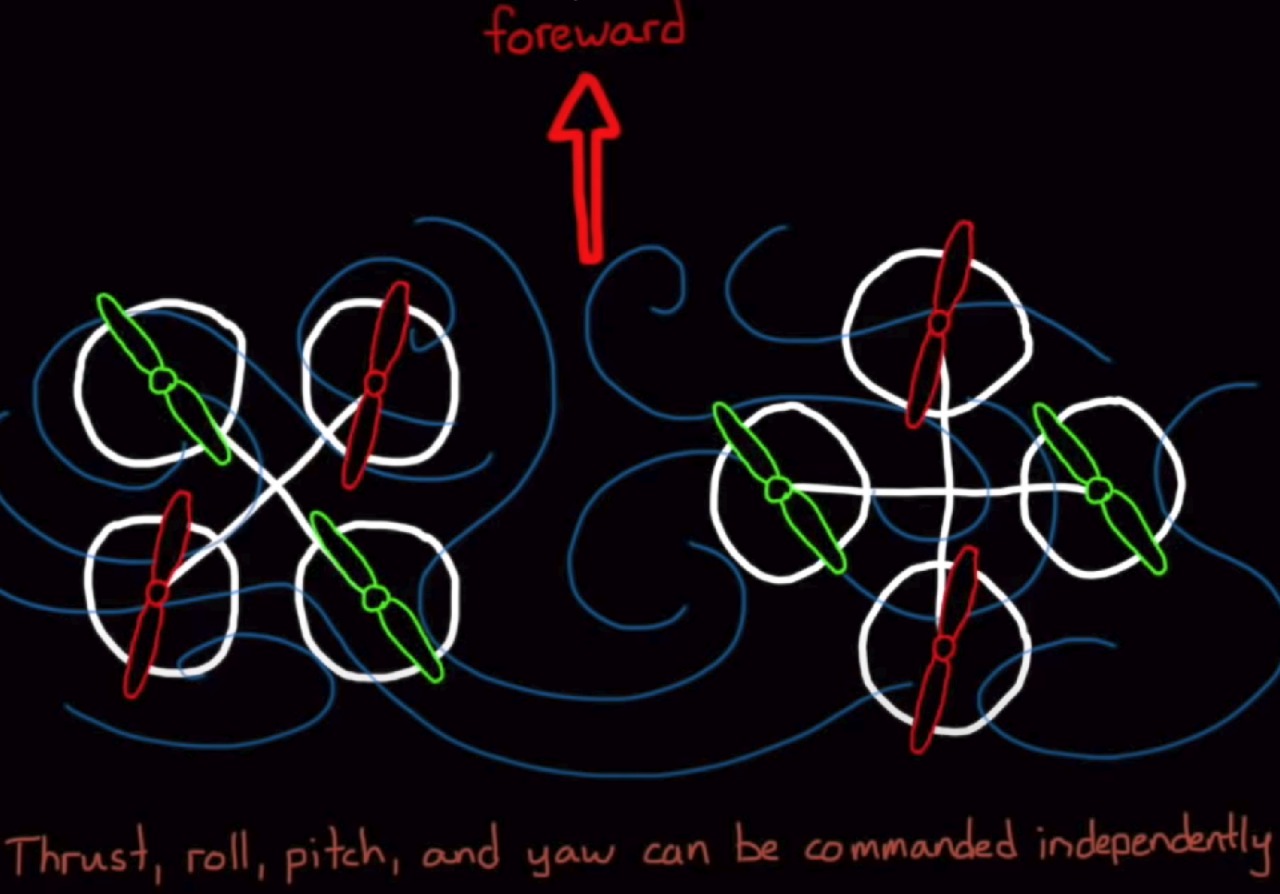 foreward
Thrust, roll, pitch, and yaw can be commanded independently